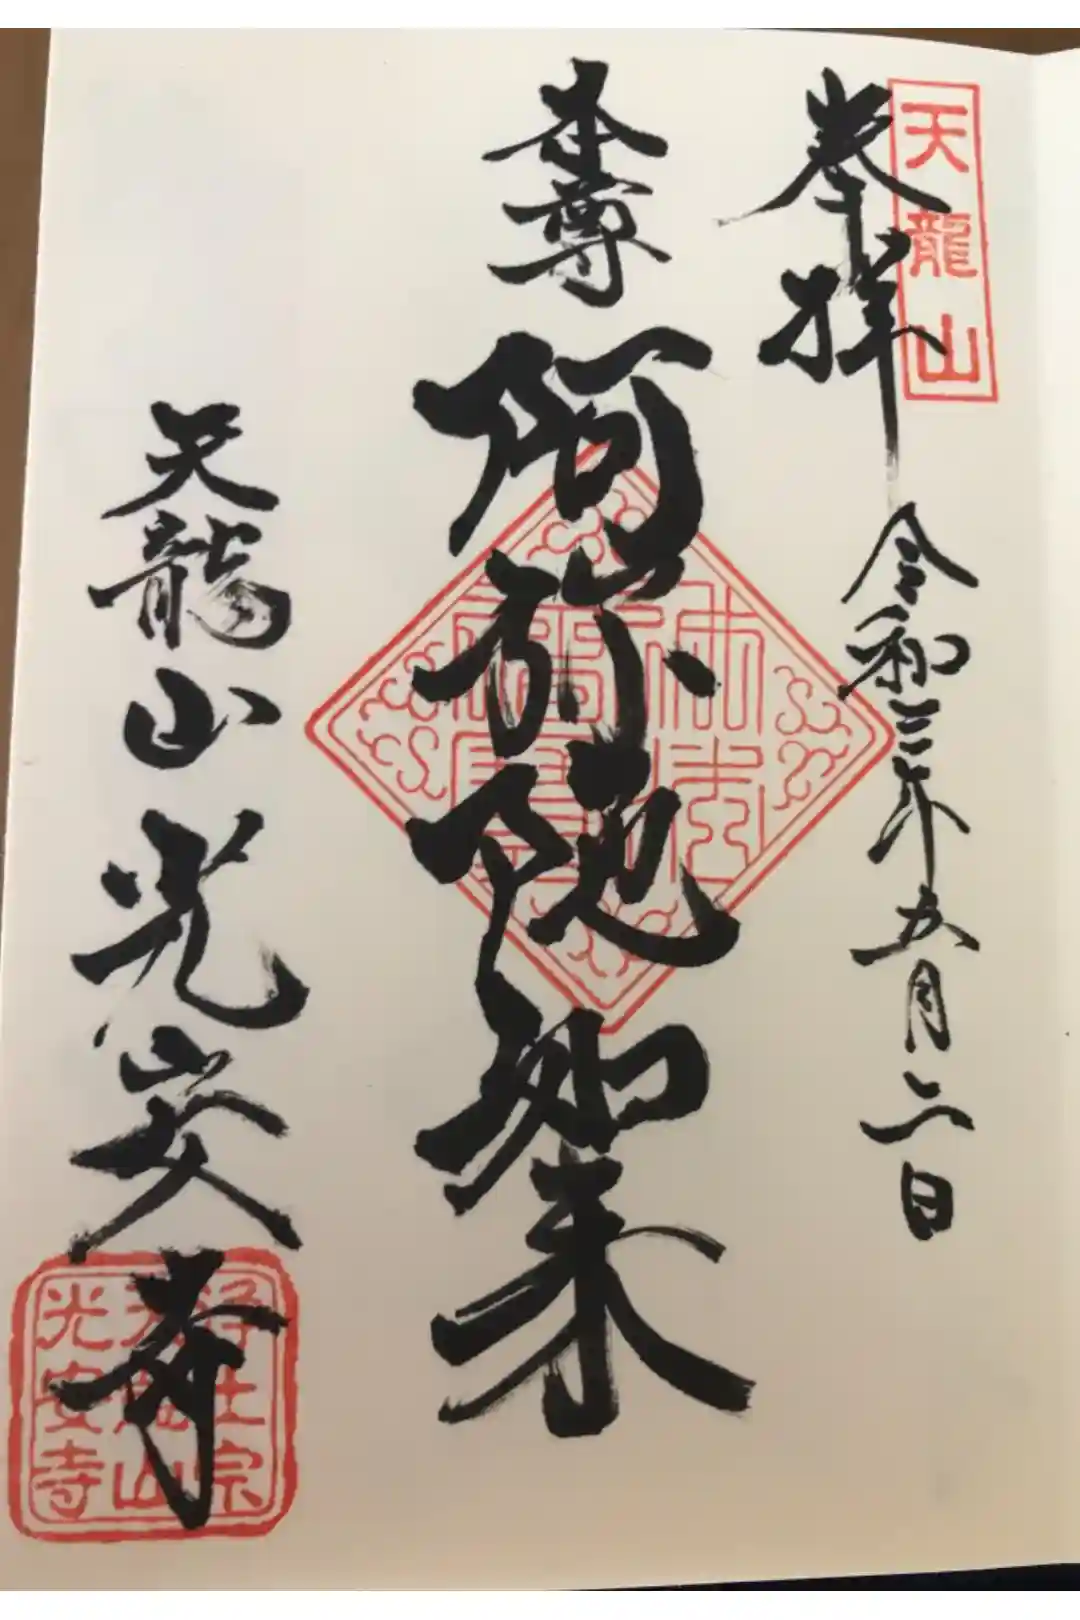 天龍山
奉拝
令和三年五月二日
本尊
阿弥陀如来
佛法僧寳
天龍山 光安寺
浄土宗
天龍山
光安寺